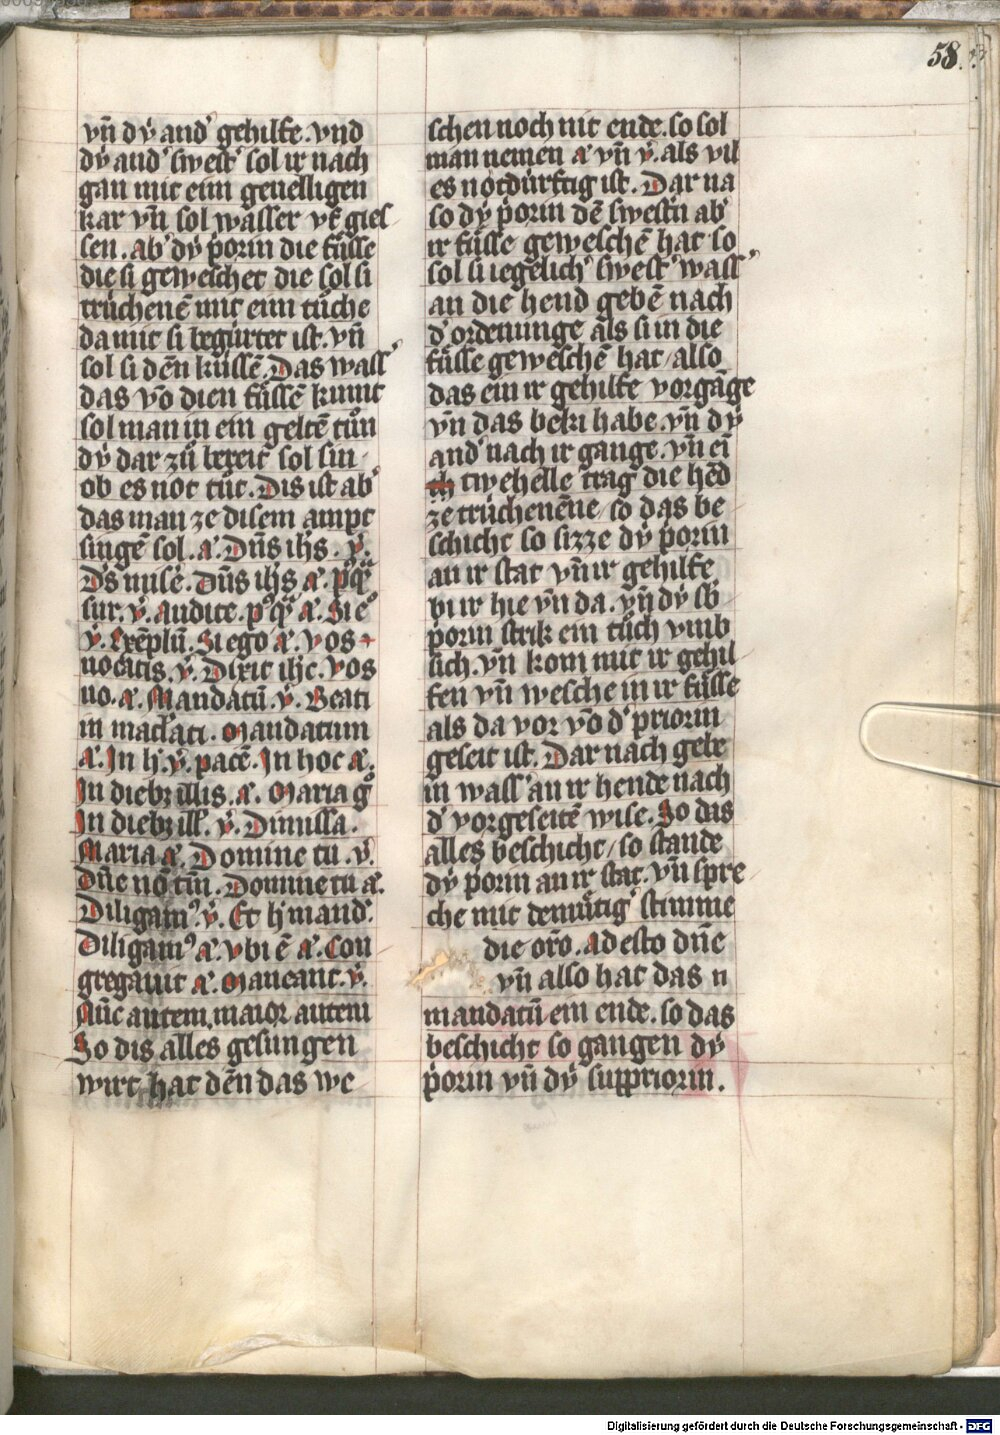 58.
vn̄ dÿ and̕ gehilfe. vnd
dÿ and̕ swest̕ sol ir nach
gan mit eim geuelligen
kar vn̄ sol wasser vf gies
sen. ab̕ dÿ p̕orin die fuͤsse
die si geweschet die sol si
truͤchenē mit eim tuͦche
da mit si beguͤrtet ist. vn̄
sol si dēn kuͤssē. Das wass̕
das vō dien fuͤssē kumt
sol man in ein geltē tuͦn
dÿ dar zuͦ bereit sol sin
ob es not tuͦt. Dis ist ab̕
das man ze disem ampt
singē sol. a̕. Dn̄s ih̄s. v̕.
sur. v̕. Audite. p̕ q̕ a̕. Si e̕
v̕. Exēplū. Si ego a̕. vos
uocatis. v̕. Dixit ihc. vos
uo. a̕. Mandatū. v̕. Beati
in maclati. Mandatum
a̕. In h̕. v̕. pacē. In hoc a̕.
In diebꝫ illis. a̕. Maria g̕
In diebꝫ ill̕. v̕. Dimissa.
Maria a̕. Domine tu. v̕.
Dn̄e nō tm̄. Domine tu a̕.
Diligam̕. v̕. Et h̕ mand̕.
Diligam̕ a̕. vbi ē a̕. Con
gregauit a̕. Maneant. v̕.
Nūc autem. maior autem
So dis alles gesungen
wirt hat dēn das we
schen noch nit ende. so sol
man nemen a̕ vn̄ v̕. als vil
es notduͤrftig ist. Dar na
so dÿ p̕orin dē swest̕n ab̕
ir fuͤsse geweschē hat so
sol si iegelich̕ swest̕ wass̕
an die hend gebē nach
d̕ ordenunge als si in die
fuͤsse geweschē hat / also
das ein ir gehilfe vorgāge
vn̄ das beki habe. vn̄ dÿ
and̕ nach ir gange. vn̄ ei
twehelle trag die hēd
ze truͤchenēne / so das be
schicht so sizze dÿ p̕orin
an ir stat vn̄ ir gehilfe
bi ir hie vn̄ da. vn̄ dÿ sb̕
p̕orin strik ein tuͦch vmb
sich. vn̄ kom mit ir gehil
fen vn̄ wesche in ir fuͤsse
als da vor vō d̕ priorin
geseit ist. Dar nach gebe
in wass̕ an ir hende nach
d̕ vorgeseitē wise. So das
alles beschicht / so stande
dÿ p̕orin an ir stat. vn̄ spre
che mit demuͤtig̕ stimme
die or̄o. ad esto dn̄e
vn̄ also hat das n
mandatū ein ende. so das
beschicht so gangen dÿ
p̕orin vn̄ dÿ suppriorin.
Digitalisierung gefördert durch die Deutsche Forschungsgemeinschaft - DFG